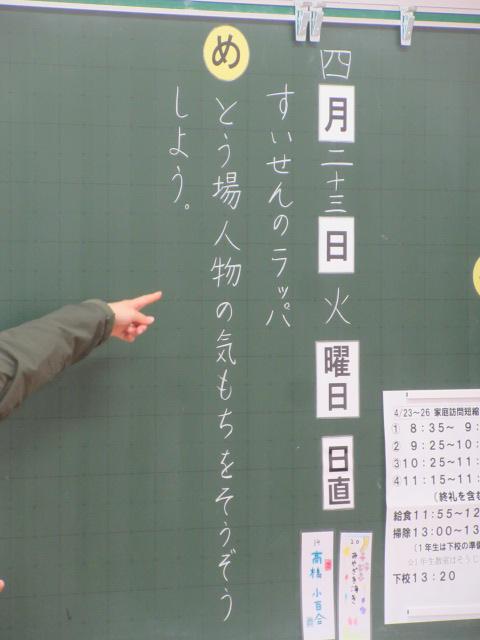 四月二十三日火曜日 日直
20 みやざき海き
14 高橋 小百合
すいせんのラッパ
め
とう場人物の気もちをそうぞう
しよう。
4/23～26 家庭訪問短縮
① 8:35～ 9:
② 9:25～10:
③10:25～11:
④11:15～11:
(終礼を含む
給食11:55～12
掃除13:00～13
(1年生は下校の準備
☆1年生教室はそうじ
下校13:20